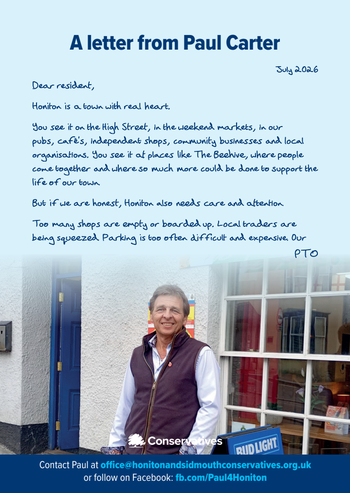 A letter from Paul Carter
July 2026
Dear resident,
Honiton is a town with real heart.
You see it on the High Street, in the weekend markets, in our
pubs, café's, independent shops, community businesses and local
organisations. You see it at places like The Beehive, where people
come together and where so much more could be done to support the
life of our town.
But if we are honest, Honiton also needs care and attention.
Too many shops are empty or boarded up. Local traders are
being squeezed. Parking is too often difficult and expensive. Our
PTO
Conservatives
BUD LIGHT
Contact Paul at office@honitonandsidmouthconservatives.org.uk
or follow on Facebook: fb.com/Paul4Honiton